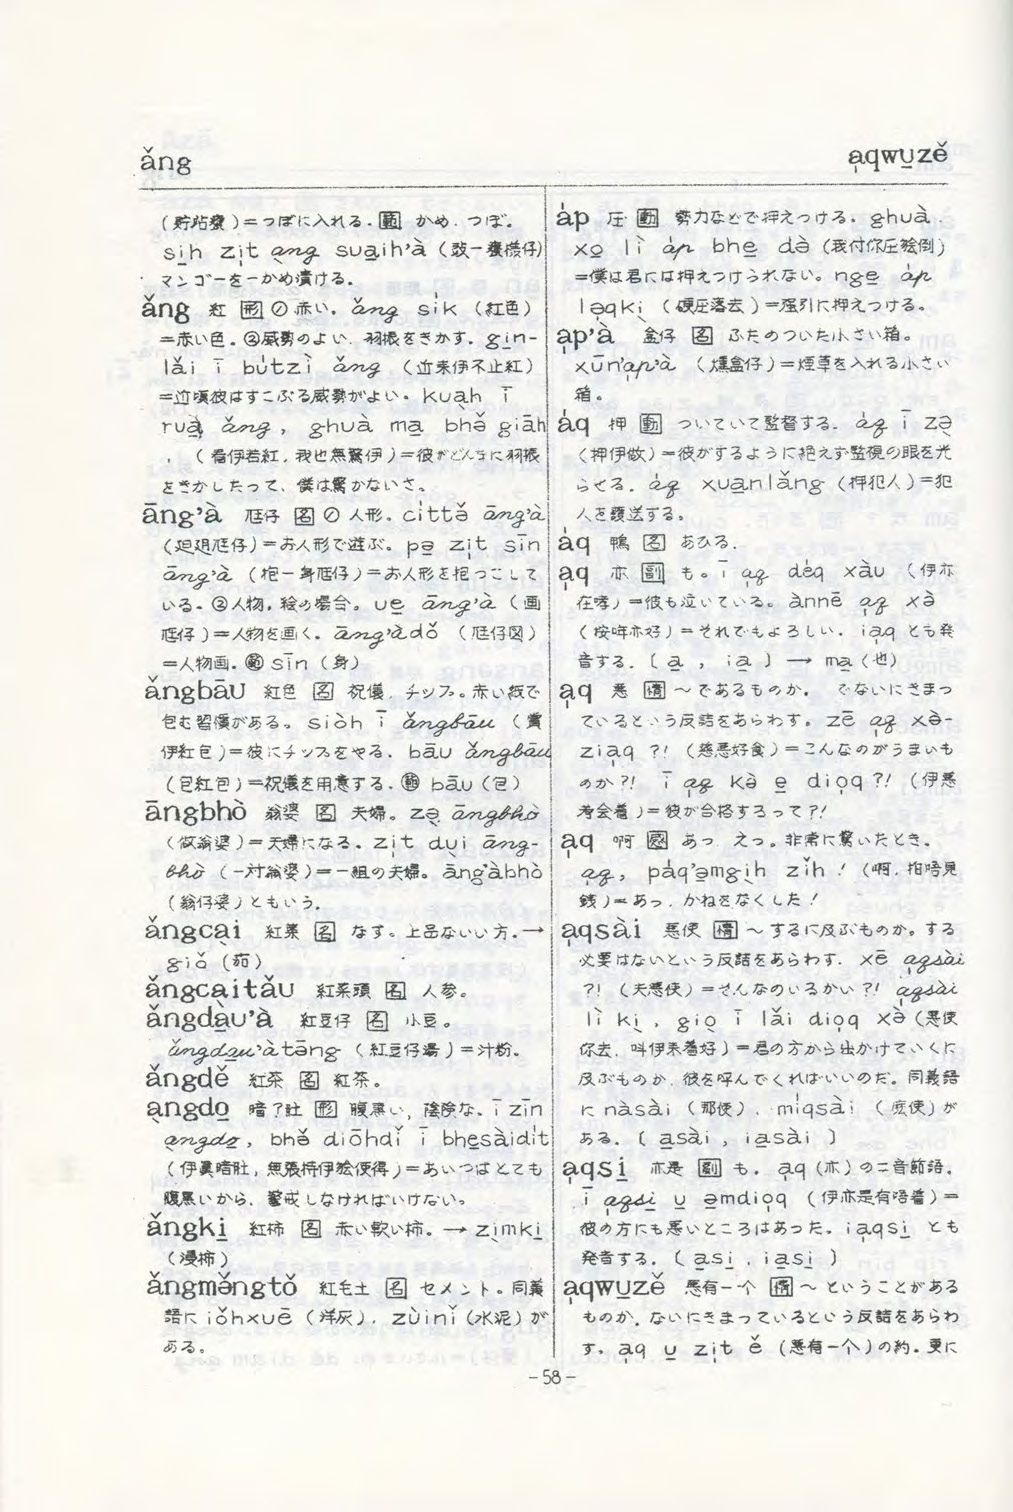 ăng
ạqwu̱zě
(貯玷甕)=つぼに入れる. 範 かめ. つぼ.
si̱h zi̍t ạng sua̱ih'à (鼓一甕檨仔)
マンゴーを一かめ漬ける.
ăng 紅 形 ①赤い. ăng si̍k (紅色)
=赤い色. ②威勢のよい. 羽振をきかす. gīn-
lǎi ī bu̍tzì ăng (近来伊不止紅)
=近頃彼はすこぶる威勢がよい. kuạh ī
ruạ̀ ăng, ghuà mạ bhě giāh
(看伊若紅, 我也無驚伊)=彼がどんなに羽振
をきかしたって, 僕は驚かないさ。
āng'à 尪仔 名 ① 人形. cittě āng'à
(𨑨迌尪仔)=お人形で遊ぶ. pə̱ zi̍t sīn
āng'à (抱一身尪仔)=お人形を抱っこして
いる. ②人物, 絵の場合. ue̱ āng'à (画
尪仔)=人物を画く. āng'àdǒ (尪仔図)
=人物画. 働 sīn (身)
ăngbāu 紅包 名 祝儀, チップ. 赤い紙で
包む習慣がある. siòh ī ăngbāu (賞
伊紅包)=彼にチップをやる. bāu ăngbāu
(包紅包)=祝儀を用意する. 働 bāu (包)
āngbhò 翁婆 名 夫婦. zə̣ āngbhò
(做翁婆)=夫婦になる. zi̍t dụi āng-
bhò (一対翁婆)=一組の夫婦. āng'àbhò
(翁仔婆)ともいう.
ăngcại 紅菜 名 なす. 上品ないい方. →
giǒ (茄)
ăngcạitău 紅菜頭 名 人参.
ăngda̱u'à 紅豆仔 名 小豆.
ăngda̱u'àtāng (紅豆仔湯)=汁粉.
ăngdě 紅茶 名 紅茶.
ạngdo̱ 暗?肚 形 腹黒い, 陰険な. ī zīn
ạngdo̱, bhě diōhdǐ ī bhe̱sàidi̍t
(伊真暗肚, 無張持伊𣍐使得)=あいつはとても
腹黒いから, 警戒しなければいけない。
ăngki̱ 紅柿 名 赤い軟い柿. → zịmki̱
(浸柿)
ăngměngtǒ 紅毛土 名 セメント. 同義
語に iǒhxuē (洋灰), zùinǐ (水泥) が
ある.
a̍p 圧 動 勢力などで押えつける. ghuà
xo̱ lì a̍p bhe̱ dà (我付你圧𣍐倒)
=僕は君には押えつけられない. nge̱ a̍p
lə̣qkị (硬圧落去)=強引に押えつける.
ạp'à 盒仔 名 ふたのついた小さい箱.
xūn'ạp'à (燻盒仔)=煙草を入れる小さい
箱.
a̍q 押 動 ついていて監督する. a̍q ī zə̣
(押伊做)=彼がするように絶えず監視の眼を光
らせる. a̍q xua̱nlăng (押犯人)=犯
人を護送する。
a̍q 鴨 名 あひる.
ạq 亦 副 も. ī ạq de̍q xàu (伊亦
在哮)=彼も泣いている. ànnē ạq xə̀
(按哖亦好)=それでもよろしい. iạq とも発
音する. [ a̱, ia̱ ] → ma̱ (也)
ạq 悪 情 ～であるものか. でないにきまっ
ているという反語をあらわす. zē ạq xə̀-
ziạq ?! (慈悪好食)=こんなのがうまいも
のか?! ī ạq kə̀ e̱ diọq ?! (伊悪
考会着)=彼が合格するって?!
ạq 啊 感 あっ えっ. 非常に驚いたとき.
ạq, pa̍q'ə̱mgịh zǐh! (啊, 拍唔見
銭)=あっ, かねをなくした!
ạqsài 悪使 情 ～するに及ぶものか. する
必要はないという反語をあらわす. xē ạqsài
?! (夫悪使)=そんなのいるかい?! ạqsài
lì kị, giọ ī lǎi diọq xə̀ (悪使
你去, 叫伊来着好)=君の方から出かけていくに
及ぶものか, 彼を呼んでくればいいのだ. 同義語
に nàsài (那使), mi̍qsài (麼使) が
ある. [ a̱sài, ia̱sài ]
ạqsi̱ 亦是 副 も. ạq (亦) の二音節語.
ī ạqsi̱ u̱ ə̱mdiọq (伊亦是有唔着)=
彼の方にも悪いところはあった. iạqsi̱ とも
発音する. [ a̱si̱, ia̱si̱ ]
ạqwu̱zě 悪有一个 情 ～ということがある
ものか. ないにきまっているという反語をあらわ
す. ạq u̱ zi̍t ě (悪有一个)の約. 更に
-58-